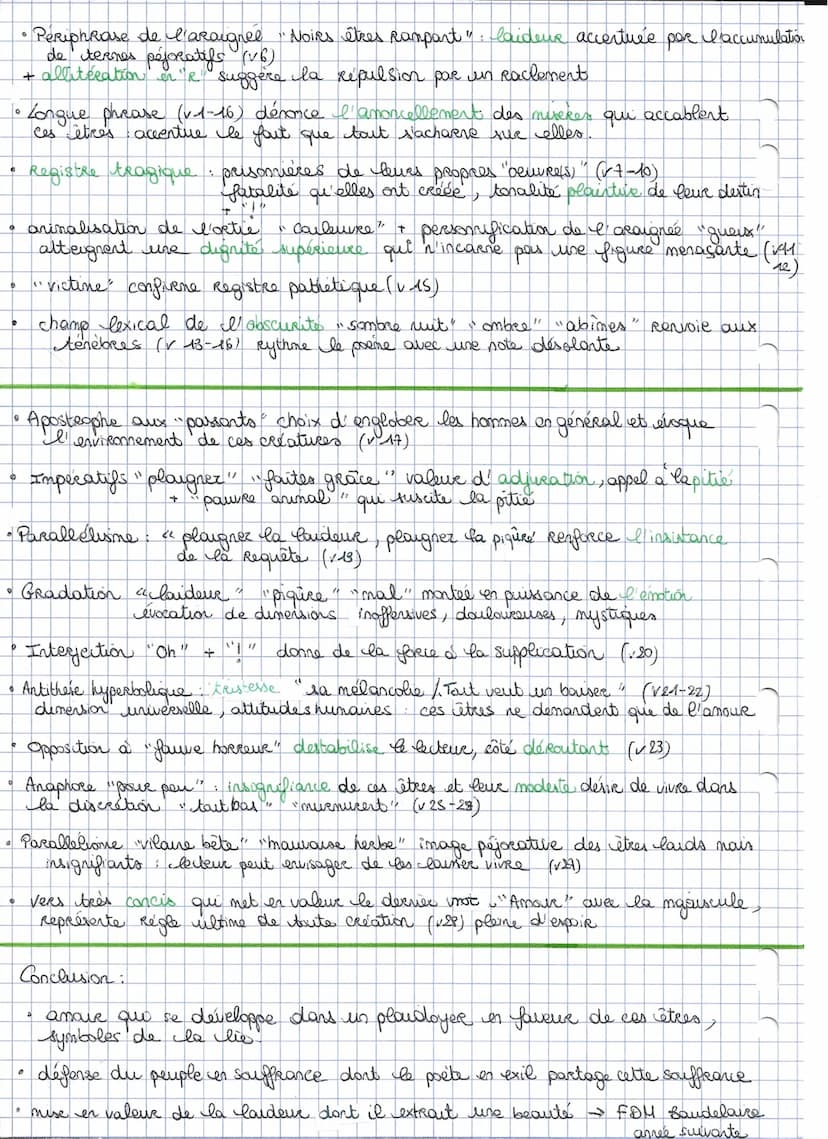 • Périphrase de l'araignée "Noirs êtres Rampant" : laideur accentuée par l'accumulation
de termes péjoratifs (v6)
+ allitération en "R" suggère la répulsion par un raclement
• Longue phrase (v1-16) dénonce l'amoncellement des misères qui accablent
ces êtres : accentue le fait que tout s'acharne sur elles.
• Registre tragique : prisonnières de leurs propres "oeuvre(s)" (v7-10)
fatalité qu'elles ont créée, tonalité plaintive de leur destin
+ "!"
• animalisation de l'ortie "couleuvre" + personnification de l'araignée "gueux"
atteignent une dignité supérieure qui n'incarne pas une figure menaçante (v11
12)
• "victime" confirme Registre pathétique (v15)
• champ lexical de l'obscurité "sombre nuit" "ombre" "abîmes" Renvoie aux
ténèbres (v 13-16) Rythme le poème avec une note désolante
• Apostrophe aux "passants" choix d'englober les hommes en général et évoque
l'environnement de ces créatures (v17)
• Impératifs "plaignez" "faites grâce" valeur d'adjuration, appel à la pitié
+ "pauvre animal" qui suscite la pitié
• Parallélisme : "plaignez la laideur, plaignez la piqûre" Renforce l'insistance
de la Requête (v19)
• Gradation "laideur" "piqûre" "mal" montée en puissance de l'émotion
évocation de dimensions inoffensives, douloureuses, mystiques
• Interjection "Oh" + "!" donne de la force à la supplication (v.20)
• Antithèse hyperbolique : tristesse "sa mélancolie / Tout veut un baiser" (v21-22)
dimension universelle, attitudes humaines : ces êtres ne demandent que de l'amour
• Opposition à "fauve horreur" destabilise le lecteur, côté déroutant (v23)
• Anaphore "pour peu" : insignifiance de ces êtres et leur modeste désir de vivre dans
la discrétion "tout bas" "murmurent" (v 25-28)
• Parallélisme "vilaine bête" "mauvaise herbe" image péjorative des êtres laids mais
insignifiants : lecteur peut envisager de les laisser vivre (v27)
• vers très concis qui met en valeur le dernier mot "Amour" avec la majuscule,
Représente Règle ultime de toute création (v28) pleine d'espoir
Conclusion :
• amour qui se développe dans un plaidoyer en faveur de ces êtres,
symboles de la lie.
• défense du peuple en souffrance dont le poète en exil partage cette souffrance
• mise en valeur de la laideur dont il extrait une beauté → FDM Baudelaire
année suivante